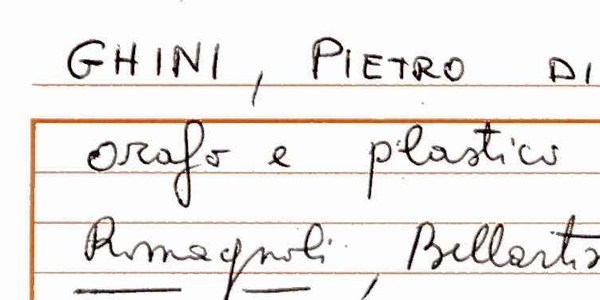 GHINI, PIETRO DI
orafo e plastico
Romagnoli, Bellartis